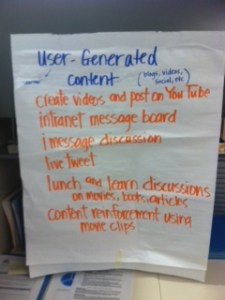 User-Generated
Content (blogs, videos,
social, etc)
create videos and post on YouTube
intranet message board
i message discussion
live tweet
lunch and learn discussions
on movies, books, articles
content reinforcement using
movie clips